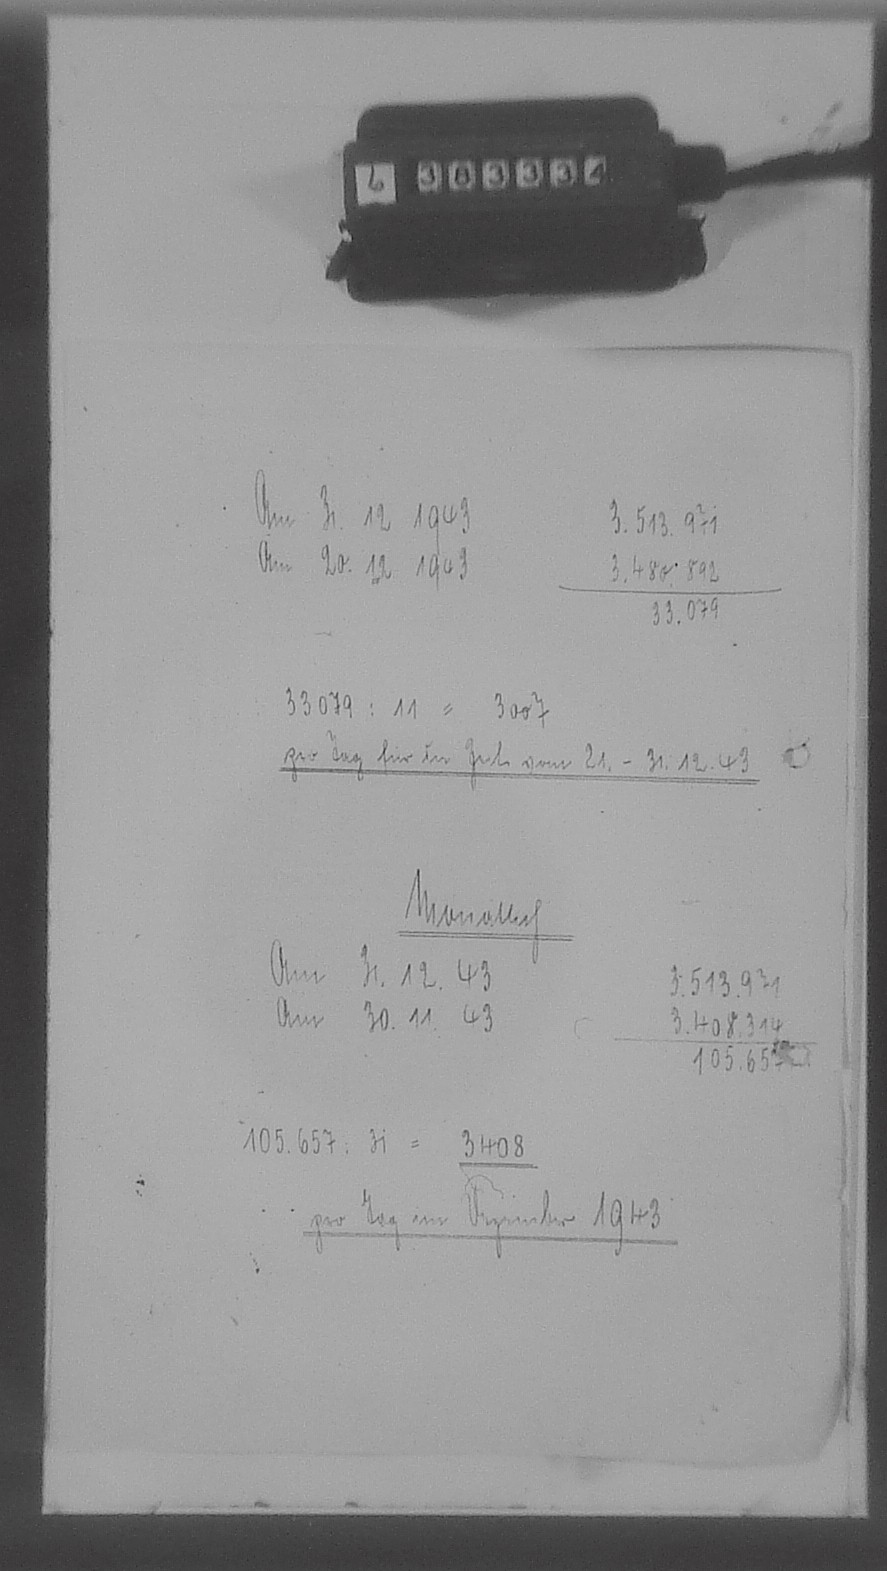 6 383334
Am 31. 12 1943 3.513.971
Am 20. 12. 1943 3.480.892
33.079
33079 : 11 = 3007
pro Tag für die Zeit vom 21. - 31. 12. 43
Monatlich
Am 31. 12. 43 3.513.971
Am 30. 11. 43 3.408.314
105.657
105.657 : 31 = 3408
pro Tag im Dezember 1943